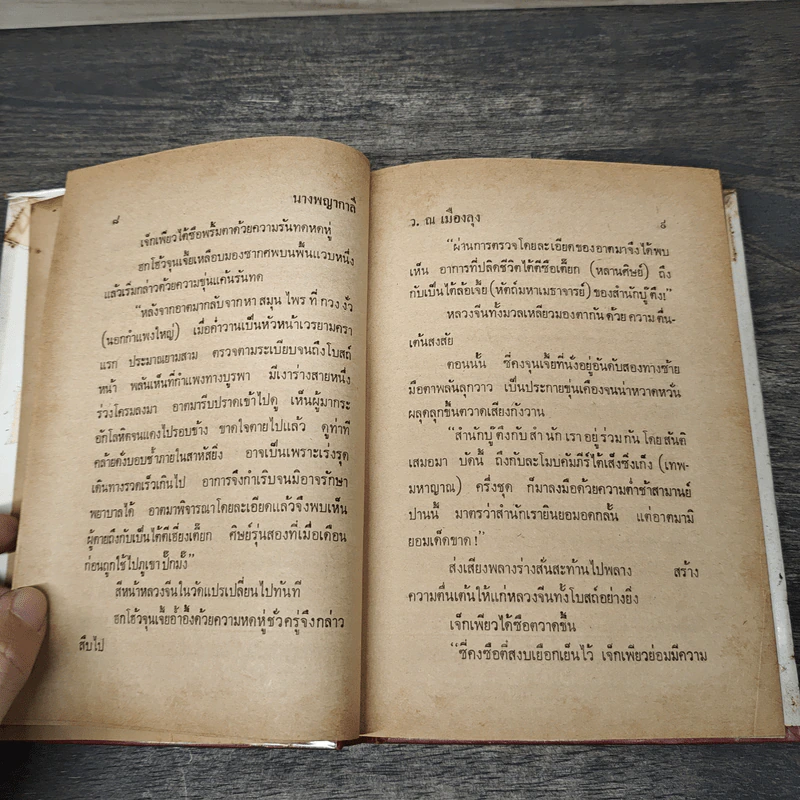 ๘
นางพญากาลี
เจ็กเพียวไต้ซือพริ้มตาด้วยความรันทดหดหู่
ฮกโฮ้วจุนเจี้ยเหลือบมองซากศพบนพื้นแวบหนึ่ง
แล้วเริ่มกล่าวด้วยความขุ่นแค้นรันทด
"หลังจากอาตมากลับจากหา สมุน ไพร ที่ กวง งัว
(นอกกำแพงใหญ่) เมื่อค่ำวานเป็นหัวหน้าเวรยามครา
แรก ประมาณยามสาม ตรวจตามระเบียบจนถึงโบสถ์
หน้า พลันเห็นที่กำแพงทางบูรพา มีเงาร่างสายหนึ่ง
ร่วงโครมลงมา อาตมารีบปราดเข้าไปดู เห็นผู้มากระ
อักโลหิตจนแดงไปรอบข้าง ขาดใจตายไปแล้ว ดูท่าที
คล้ายดั่งบอบช้ำภายในสาหัสยิ่ง อาจเป็นเพราะเร่งรุด
เดินทางรวดเร็วเกินไป อาการจึงกำเริบจนมิอาจรักษา
พยาบาลได้ อาตมาพิจารณาโดยละเอียดแล้วจึงพบเห็น
ผู้ตายถึงกับเป็นไต้ตีเฮี่ยงเตี๊ยก ศิษย์รุ่นสองที่เมื่อเดือน
ก่อนถูกใช้ไปภูเขา ปักมั้ง"
สีหน้าหลวงจีนในวัดแปรเปลี่ยนไปทันที
ฮกโฮ้วจุนเจี้ยอ้ำอึ้งด้วยความหดหู่ชั่วครู่จึงกล่าว
สืบไป
ว. ณ เมืองลุง
๙
"ผ่านการตรวจโดยละเอียดของอาตมาจึงได้พบ
เห็น อาการที่ปลิดชีวิตไต้ตีซือเตี๊ยก (หลานศิษย์) ถึง
กับเป็นไต้ล้อเจี้ย (หัตถ์มหาเมธาจารย์) ของสำนักบู๊ตึง!"
หลวงจีนทั้งมวลเหลียวมองตากัน ด้วย ความ ตื่น-
เต้นสงสัย
ตอนนั้น ซี่คงจุนเจี้ยที่นั่งอยู่อันดับสองทางซ้าย
มือตาพลันลุกวาว เป็นประกายขุ่นเคืองจนน่าหวาดหวั่น
ผลุดลุกขึ้นตวาดเสียงกังวาน
"สำนักบู๊ ตึงกับ สำ นัก เรา อยู่ ร่วม กัน โดย สันติ
เสมอมา บัดนี้ ถึงกับละโมบคัมภีร์ไต้เส็งซิ่งเก็ง (เทพ-
มหาญาณ) ครึ่งชุด ก็มาลงมือด้วยความต่ำช้าสามานย์
ปานนี้ มาตรว่าสำนักเรายินยอมอดกลั้น แต่อาตมามิ
ยอมเด็ดขาด !"
ส่งเสียงพลางร่างสั่นสะท้านไปพลาง สร้าง
ความตื่นเต้นให้แก่หลวงจีนทั้งโบสถ์อย่างยิ่ง
เจ็กเพียวไต้ซือตวาดขึ้น
"ซี่คงซือตี๋สงบเยือกเย็นไว้ เจ็กเพียวย่อมมีความ